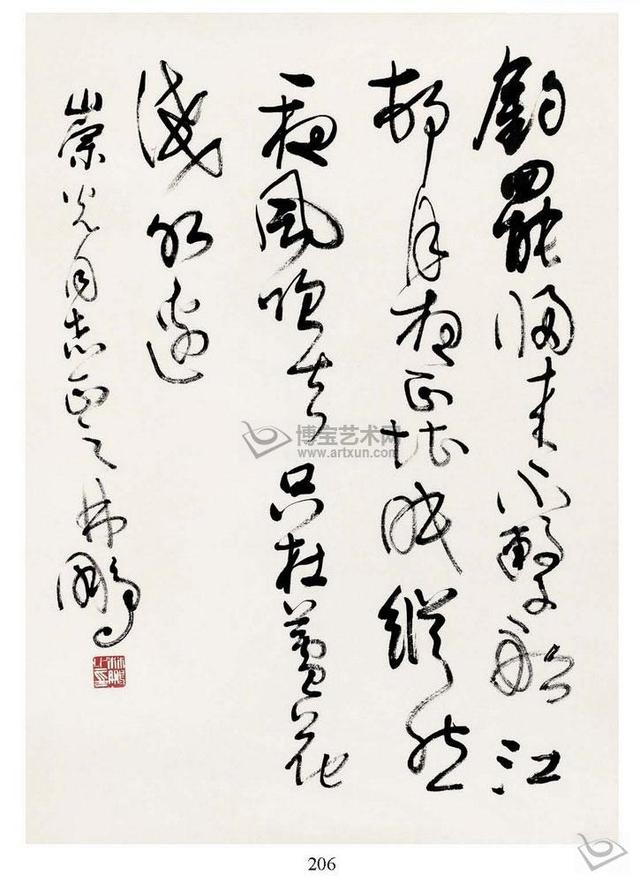 釣罷歸來不繫船江
村月夜正堪眠縱然
一夜風吹去只在蘆花
淺水邊
崇光同志正之林鵬
林鵬之印
博宝艺术网
www.artxun.com
206